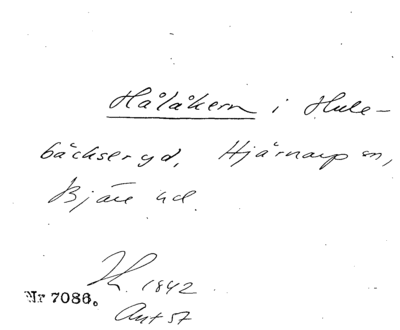 Hålåkern i Hule-
bäckseryd, Hjärnarp sn,
Bjäre hd.
1842
Nr 7086.
Avt 57